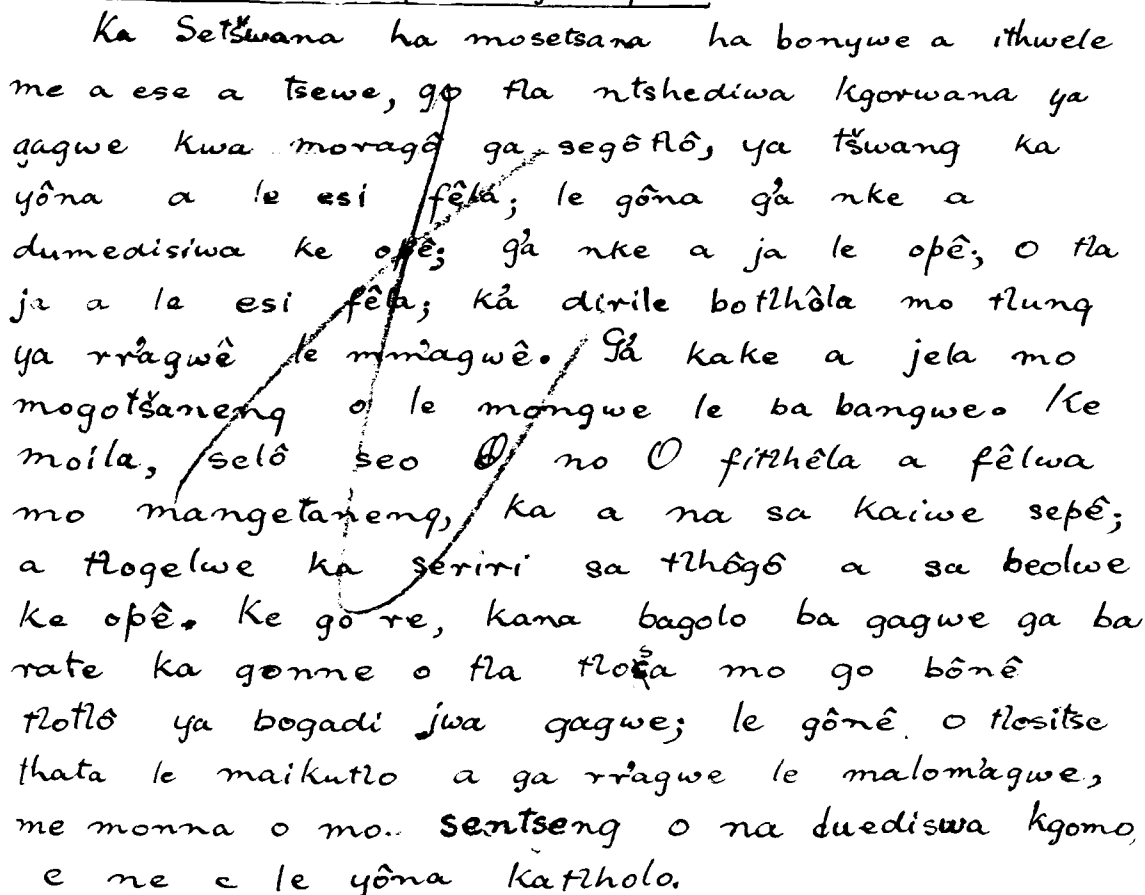 Ka Setšwana ha mosetsana ha bonywe a ithwele
me a ese a tsewe, go tla ntshediwa kgorwana ya
gagwe kwa moragô ga segôtlô, ya tšwang ka
yôna a le esi fêla; le gôna g'a nke a
dumedisiwa ke opê; g'a nke a ja le opê; O tla
ja a le esi fêla; k'a dirile botlhôla mo tlung
ya rr'agwê le mm'agwê. G'a kake a jela mo
mogotšaneng o le mongwe le ba bangwe. Ke
moila, selô seo O no O fitlhêla a fêlwa
mo mangetaneng, ka a na sa kaiwe sepê;
a tlogelwe ka seriri sa tlhôgô a sa beolwe
ke opê. Ke go re, kana bagolo ba gagwe ga ba
rate ka gonne o tla tlosa mo go bônê
tlotlô ya bogadi jwa gagwe; le gônê o tlositse
thata le maikutlo a ga rr'agwe le malom'agwe,
me monna o mo.. sentseng o na duediswa kgomo,
e ne e le yôna katlholo.